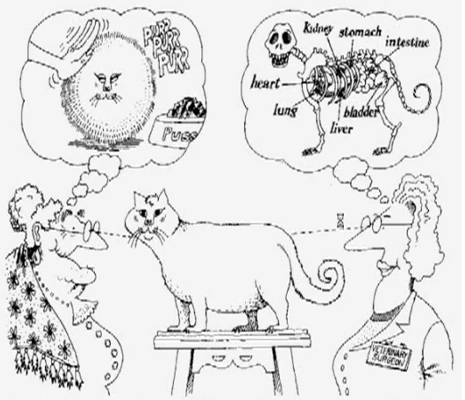 PURR
PURR
PURR
Puss
kidney
stomach
intestine
heart
lung
bladder
liver
VETERINARY
SURGEON